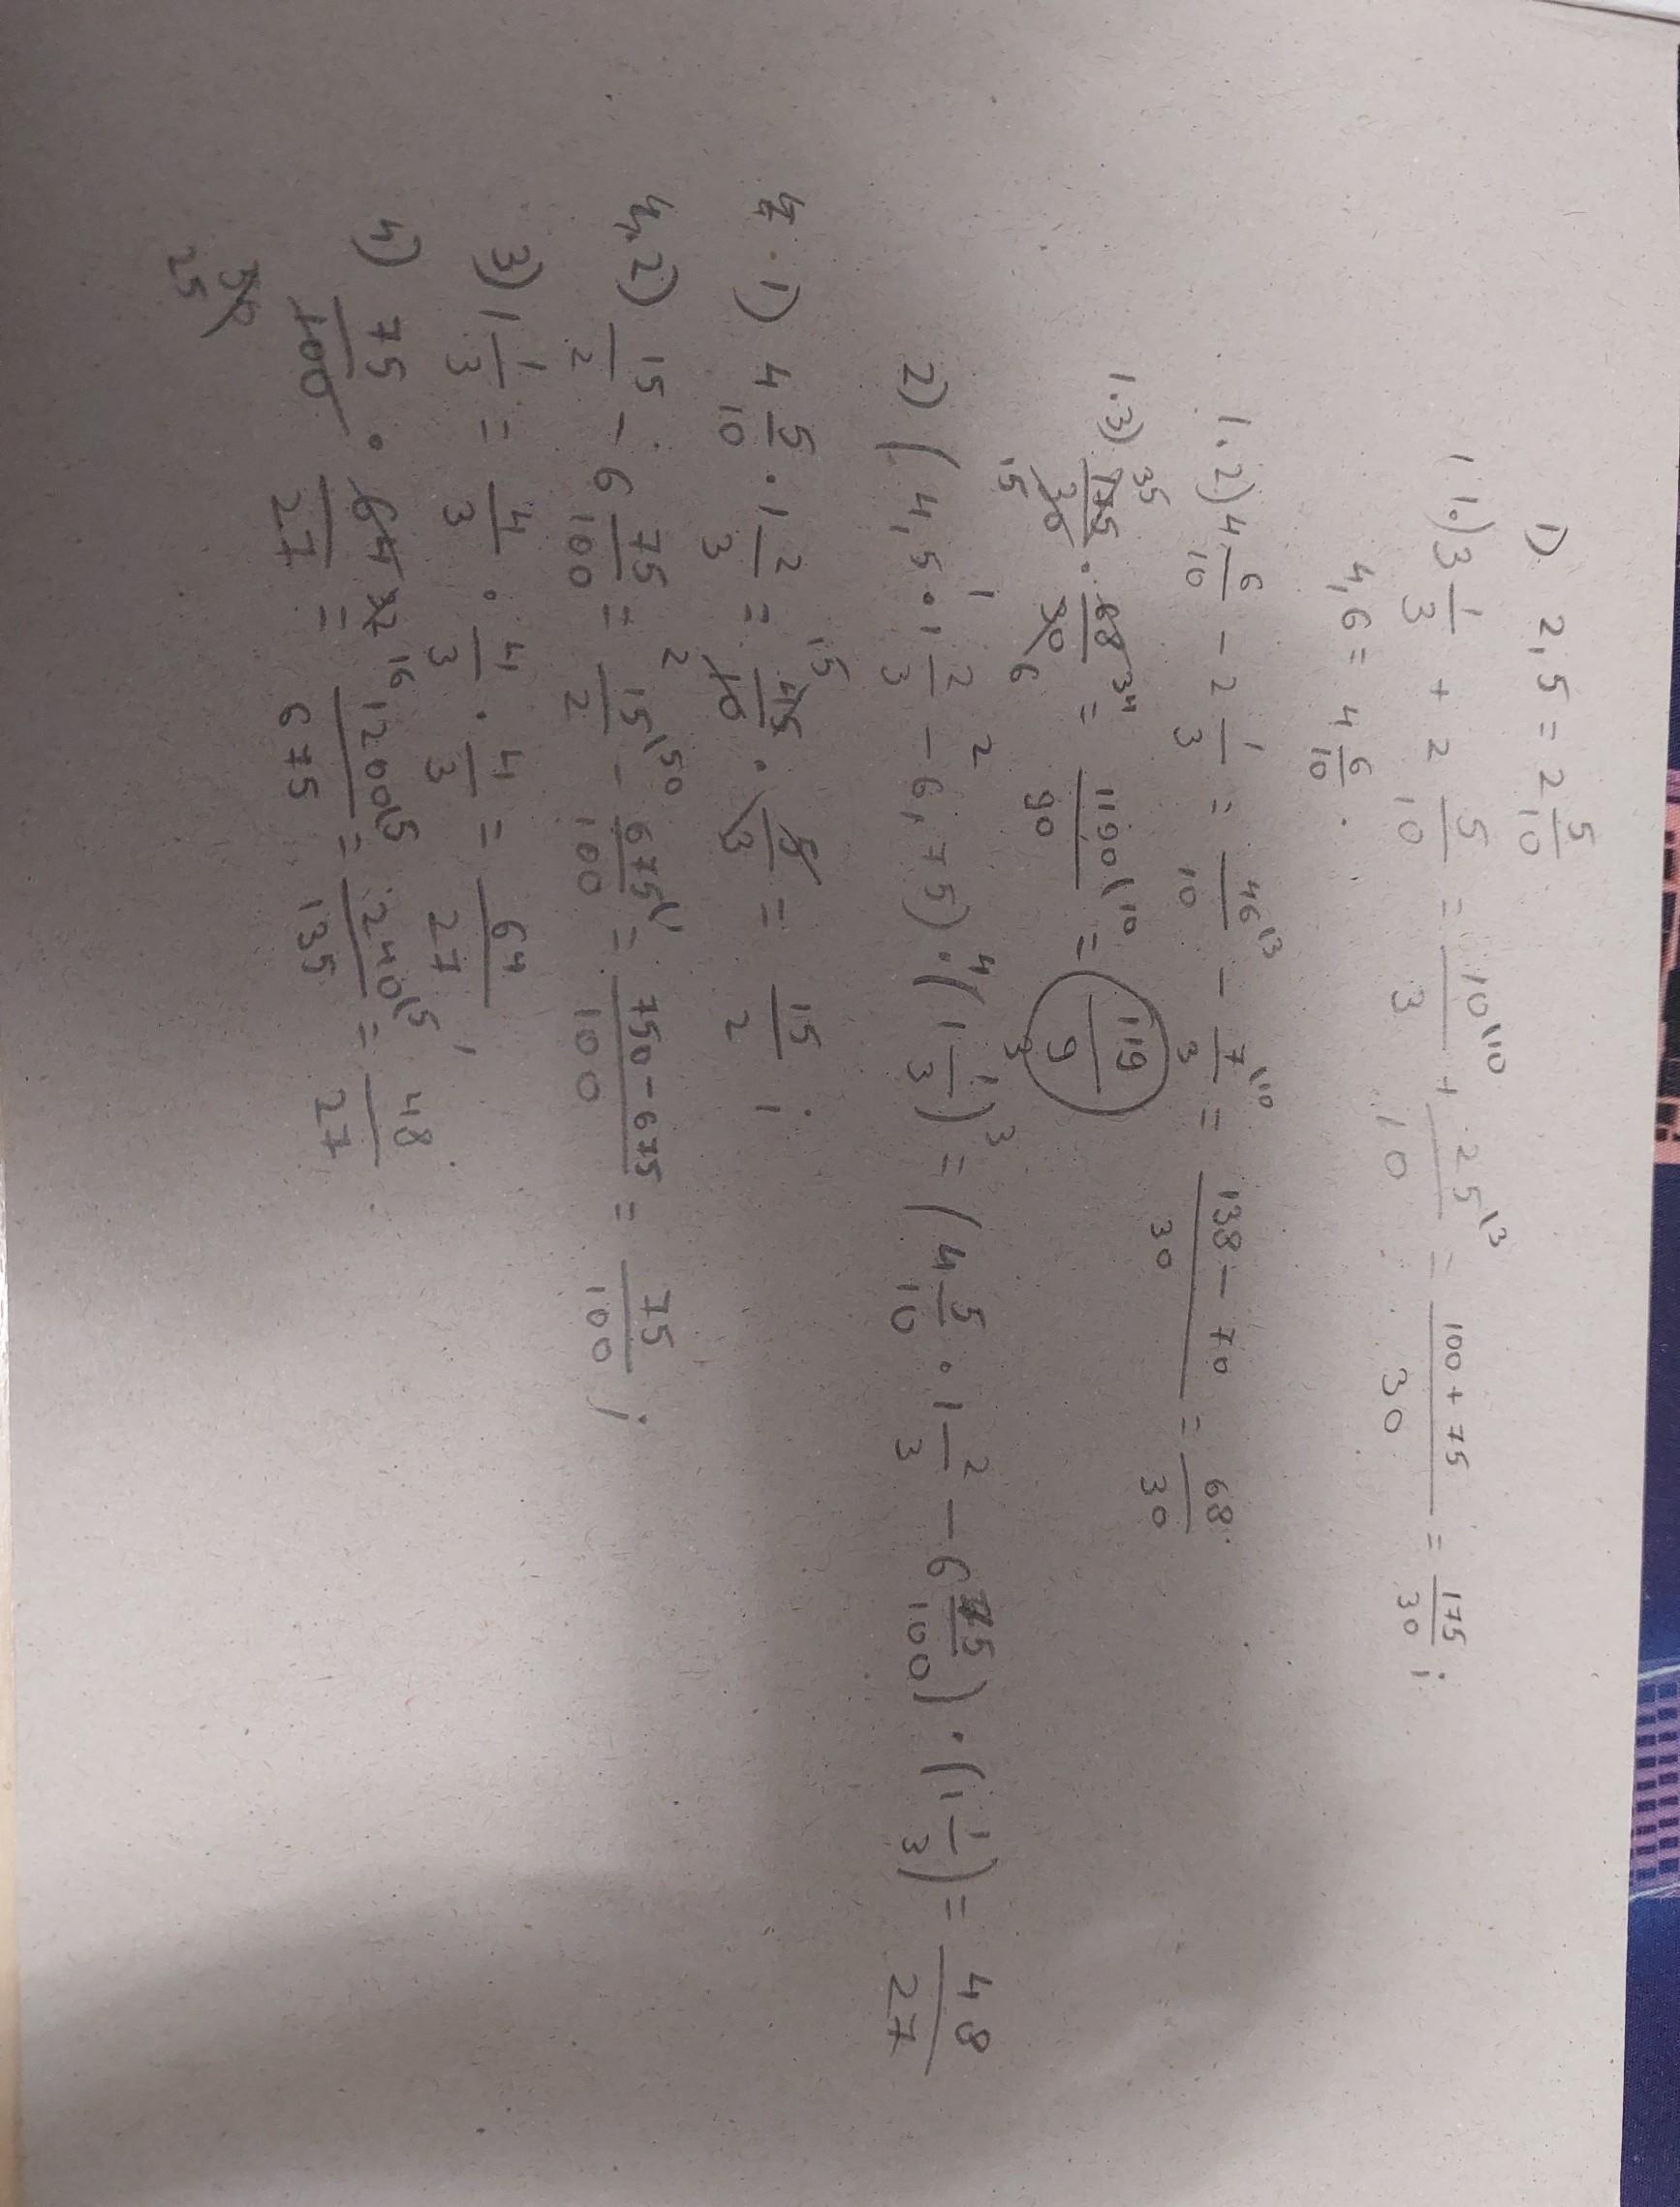 1) 2,5 = 2 5/10
1.1.) 3 1/3 + 2 5/10 = 10\10/3 + 25\3/10 = 100 + 75/30 = 175/30 ;
4,6 = 4 6/10 .
1.2) 4 6/10 - 2 1/3 = 46\3/10 - 7\10/3 = 138 - 70/30 = 68/30
1.3) 175 35/30 15 · 68 34/30 6 = 1190\10/90 = 119/9
2) (4,5 · 1 2/3 - 6,75) · (1 1/3)³ = (4 5/10 · 1 2/3 - 6 75/100) · (1 1/3) = 48/27
1) 4 5/10 · 1 2/3 = 45 15/10 2 · 5/3 = 15/2 ;
2) 15/2 - 6 75/100 = 15\50/2 - 675\1/100 = 750 - 675/100 = 75/100 ;
3) 1 1/3 = 4/3 · 4/3 · 4/3 = 64/27
4) 75/100 · 64 16/27 = 1200\5/675 = 240\5/135 = 48/27
25